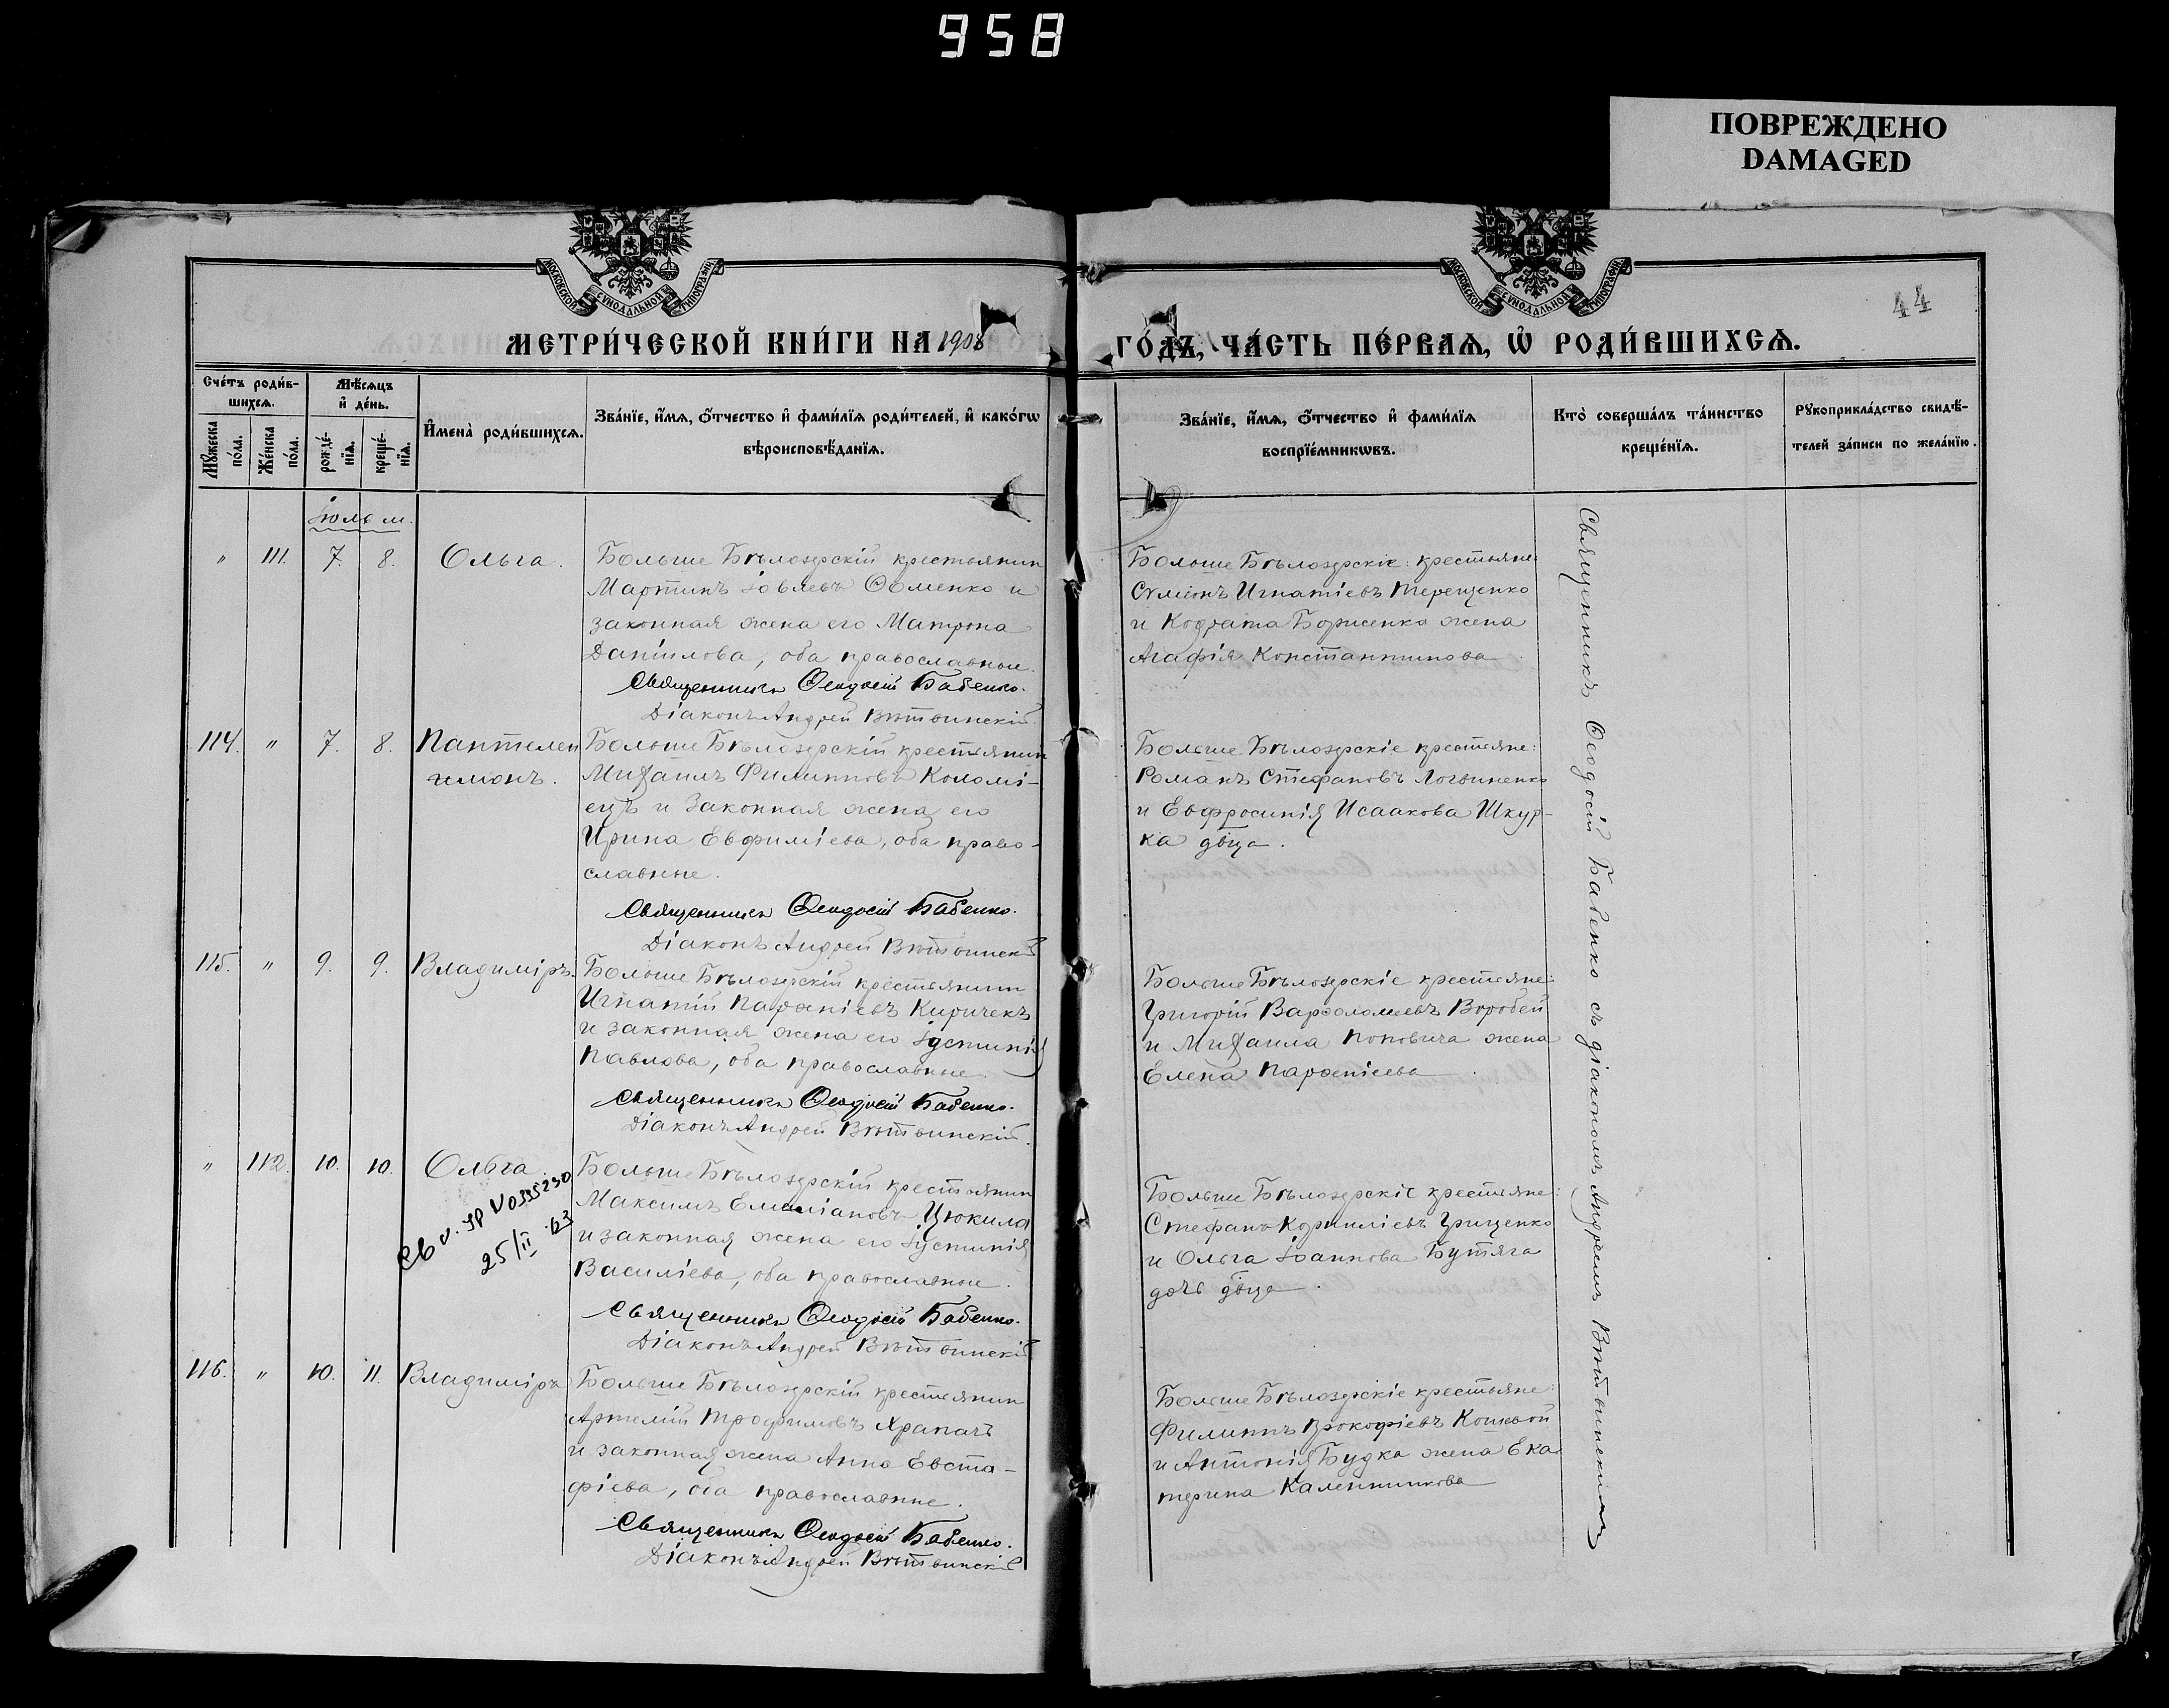 958
ПОВРЕЖДЕНО
DAMAGED
МОСКОВСКОЙ СѴНОДАЛЬНОЙ ТИПОГРАФІИ
МОСКОВСКОЙ СѴНОДАЛЬНОЙ ТИПОГРАФІИ
44
МЕТРИ́ЧЕСКОЙ КНИ́ГИ НА 1908
ГО́ДЪ, ЧА́СТЬ ПЕ́РВАѦ, Ѽ РОДИ́ВШИХСѦ.
Сче́тъ роди́в-
шихсѧ.
Мꙋ́жеска
по́ла.
Же́нска
по́ла.
Мѣ́сѧцъ
и҆ де́нь.
рожде́-
нїѧ.
креще́-
нїѧ.
И҆мена̀ роди́вшихсѧ.
Зва́нїе, и҆́мѧ, ѻ҆́тчество и҆ фами́лїѧ роди́телей, и҆ како́гѡ
вѣроисповѣ́данїѧ.
Зва́нїе, и҆́мѧ, ѻ҆́тчество и҆ фами́лїѧ
воспрїе́мникѡвъ.
Кто̀ соверша́лъ та́инство
креще́нїѧ.
Рꙋкоприкла́дство свидѣ́-
телей за́писи по жела́нїю.
Іюль м.
" 111. 7. 8. Ольга.
Больше Бѣлозерскій крестьянин
Мартинъ Іовлевъ Ѳоменко и
законная жена его Матрона
Даніилова, оба православные.
Священникъ Ѳеодосій Бабенко.
Діаконъ Андрей Вѣтвинскій.
Больше Бѣлозерскіе: крестьяне:
Сѵмеонъ Игнатіевъ Терещенко
и Кодрата Борисенка жена
Агафія Константинова
114. " 7. 8. Пантелеи
имонъ.
Больше Бѣлозерскій крестьянин
Михаилъ Филипповъ Коломі-
ецъ и законная жена его
Ирина Евфиміева, оба право-
славные.
Священникъ Ѳеодосій Бабенко.
Діаконъ Андрей Вѣтвинскій
Больше Бѣлозерскіе крестьяне:
Романъ Стефановъ Логвиненко
и Евфросинія Исаакова Шкур-
ка дѣвца.
115. " 9. 9. Владиміръ.
Больше Бѣлозерскій крестьянин
Игнатій Парѳеніевъ Киричекъ
и законная жена его Іустинія
Павлова, оба православные.
Священникъ Ѳеодосій Бабенко.
Діаконъ Андрей Вѣтвинскій.
Больше Бѣлозерскіе крестьяне:
Григорій Варѳоломеевъ Воробей
и Михаила Поповича жена
Елена Парѳеніева
" 112. 10. 10. Ольга.
25/II 63
Больше Бѣлозерскій крестьянин
Максимъ Емиліановъ Цюкила
и законная жена его Іустинія
Василіева, оба православные.
Священникъ Ѳеодосій Бабенко.
Діаконъ Андрей Вѣтвинскій
Больше Бѣлозерскіе крестьяне:
Стефанъ Корниліевъ Грищенко
и Ольга Іоаннова Бутяга
дочь дѣвца.
116. " 10. 11. Владиміръ
Больше Бѣлозерскій крестьянин
Артемій Трофимовъ Храпачъ
и законная жена Анна Евста-
фіева, оба православные.
Священникъ Ѳеодосій Бабенко.
Діаконъ Андрей Вѣтвинскій
Больше Бѣлозерскіе крестьяне:
Филиппъ Прокофіевъ Кошевой
и Антонія Будка жена Ека-
терина Калинникова
Священникъ Ѳеодосій Бабенко съ діакономъ Андреемъ Вѣтвинскимъ